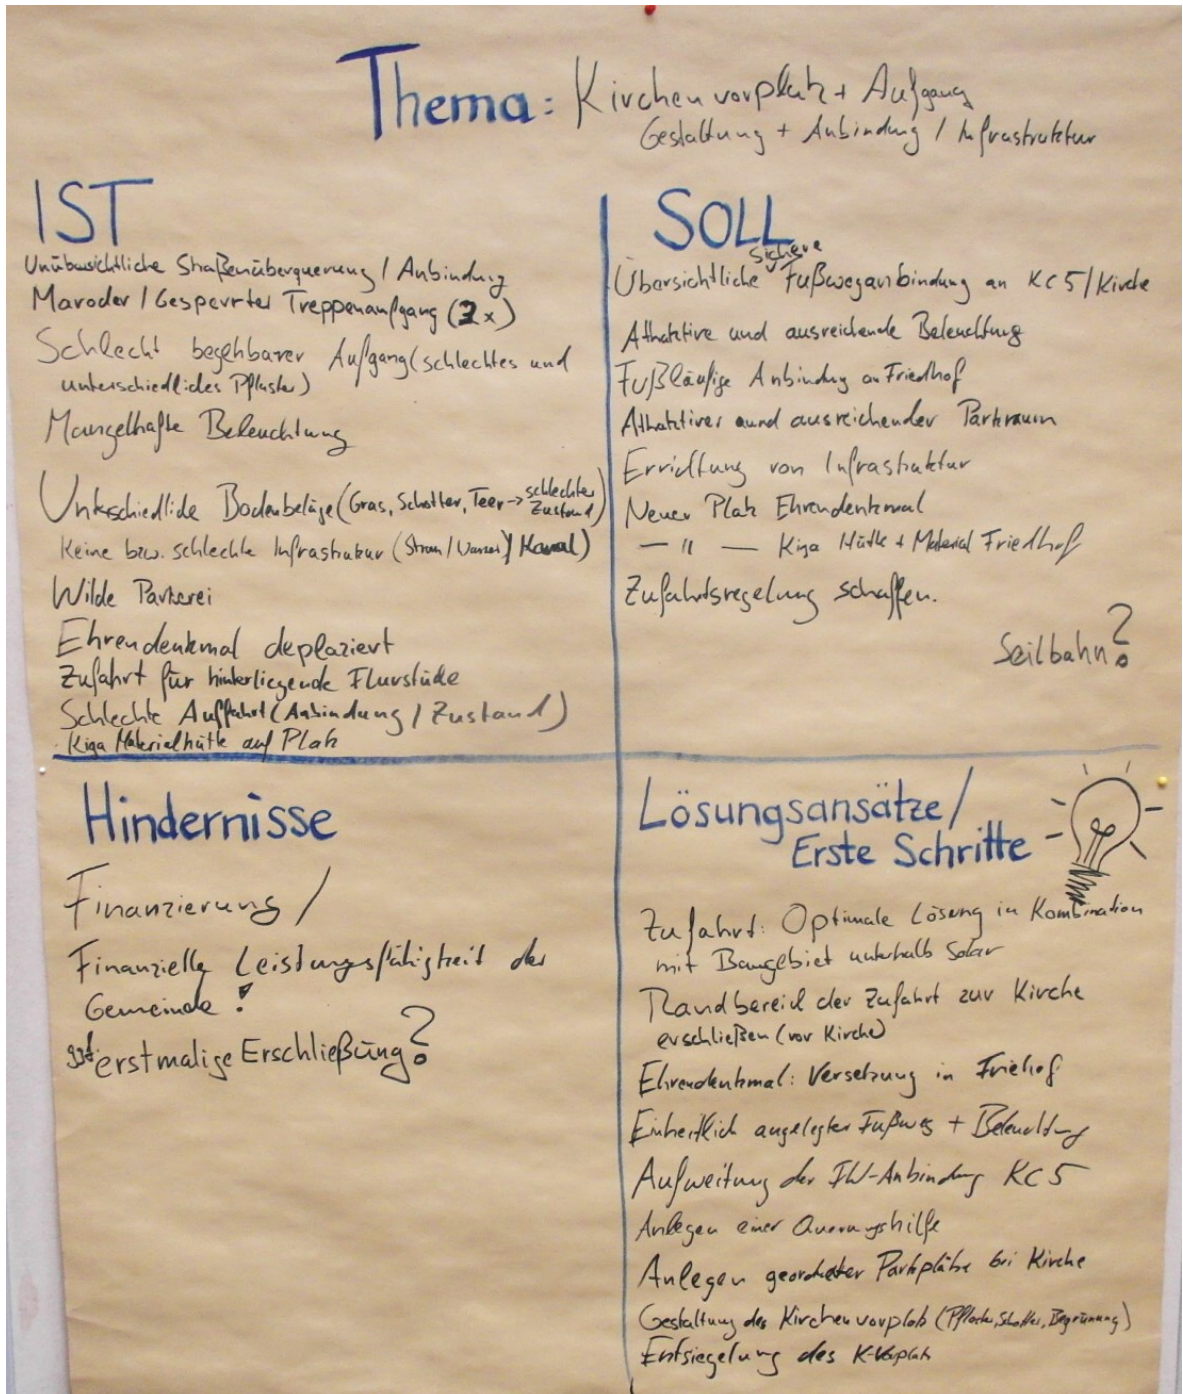 Thema: Kirchenvorplatz + Aufgang
Gestaltung + Anbindung / Infrastruktur
IST
Unübersichtliche Straßenüberquerung / Anbindung
Maroder / Gesperrter Treppenaufgang (2x)
Schlecht begehbarer Aufgang (schlechtes und
unterschiedliches Pflaster)
Mangelhafte Beleuchtung
Unterschiedliche Bodenbeläge (Gras, Schotter, Teer → schlechter
Zustand)
Keine bzw. schlechte Infrastruktur (Strom / Wasser / Kanal)
Wilde Parkerei
Ehrendenkmal deplaziert
Zufahrt für hinterliegende Flurstücke
Schlechte Auffahrt (Anbindung / Zustand)
Kiga Materialhütte auf Platz
SOLL
sichere
Übersichtliche Fußweganbindung an KC5 / Kirche
Attraktive und ausreichende Beleuchtung
Fußläufige Anbindung an Friedhof
Attraktiver und ausreichender Parkraum
Errichtung von Infrastruktur
Neuer Platz Ehrendenkmal
— " — Kiga Hütte + Material Friedhof
Zufahrtsregelung schaffen.
Seilbahn?
Hindernisse
Finanzierung /
Finanzielle Leistungsfähigkeit der
Gemeinde!
ggf. erstmalige Erschließung?
Lösungsansätze /
Erste Schritte
Zufahrt: Optimale Lösung in Kombination
mit Baugebiet unterhalb Solar
Randbereich der Zufahrt zur Kirche
erschließen (vor Kirche)
Ehrendenkmal: Versetzung in Friehof
Einheitlich angelegter Fußweg + Beleuchtung
Aufweitung der FW-Anbindung KC5
Anlegen einer Querungshilfe
Anlegen geordneter Parkplätze bei Kirche
Gestaltung des Kirchenvorplatz (Pflaster, Schotter, Begrünung)
Entsiegelung des K-Vorplatz